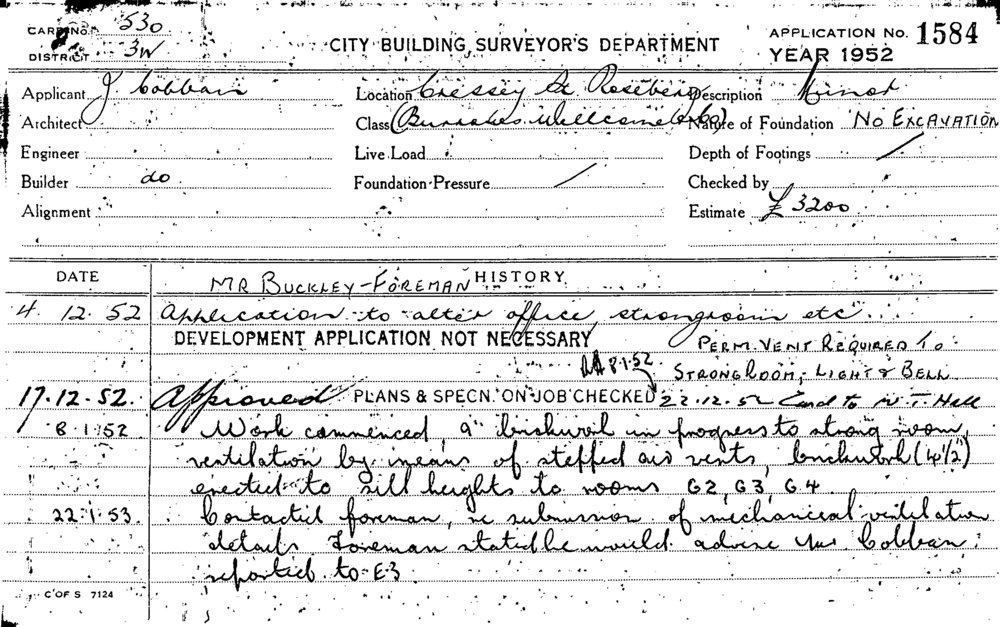 CARD No. 530
DISTRICT 3W
CITY BUILDING SURVEYOR'S DEPARTMENT
APPLICATION No. 1584
YEAR 1952
Applicant J. Cobban Location Cressey St Rosebery Description Minor
Architect Class (Burroughs Wellcome & Co) Nature of Foundation NO EXCAVATION
Engineer Live Load Depth of Footings /
Builder do Foundation Pressure / Checked by
Alignment Estimate £3200
DATE MR BUCKLEY - FOREMAN HISTORY
4. 12. 52 Application to alter office, strongroom etc.
DEVELOPMENT APPLICATION NOT NECESSARY PERM. VENT REQUIRED TO
8.1.52 STRONG ROOM, LIGHT & BELL
17.12.52. Approved PLANS & SPECN. ON JOB CHECKED 22.12.52 Card to N. T. Hall
8.1.52 Work commenced, 9" brickwork in progress to strong room,
ventilation by means of stepped air vents, brickwork (4½")
erected to sill heights to rooms G2, G3, G4.
22.1.53. Contacted foreman, re submission of mechanical ventilation
details. Foreman stated he would advise Mr Cobban.
reported to E3.
C OF S 7124